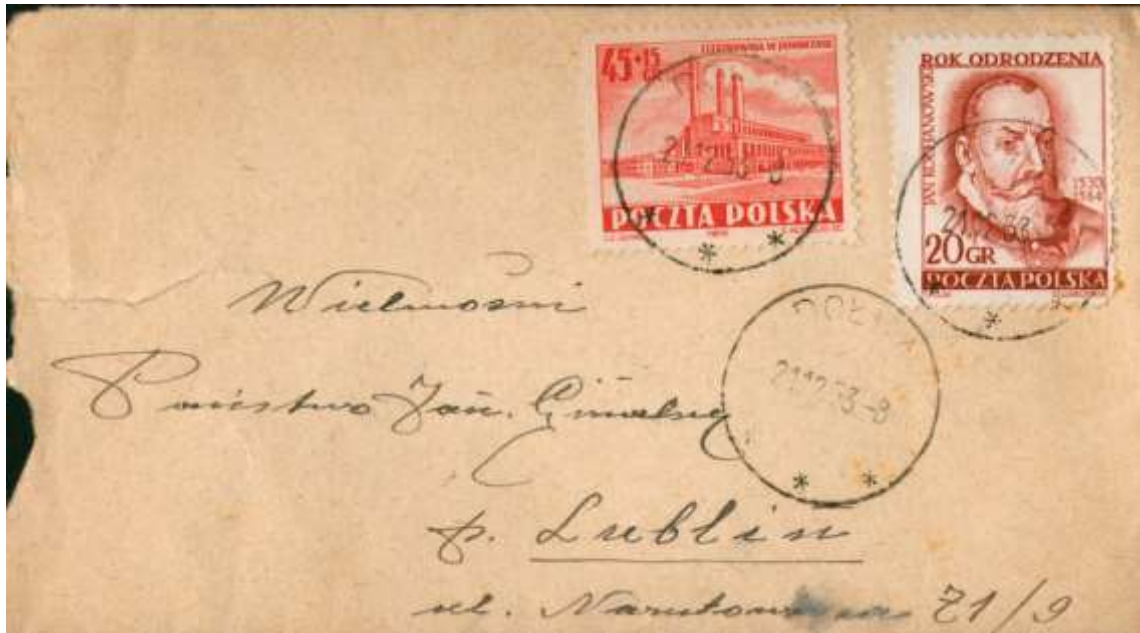 45+15 GR
ELEKTROWNIA W JAWORZNIE
POCZTA POLSKA
ROK ODRODZENIA
JAN KOCHANOWSKI
1530
1584
20 GR
POCZTA POLSKA
21.12.53-8
21.12.53
21.12.53-8
Wielmożni
Państwo Jań.
p. Lublin
ul. 71/9